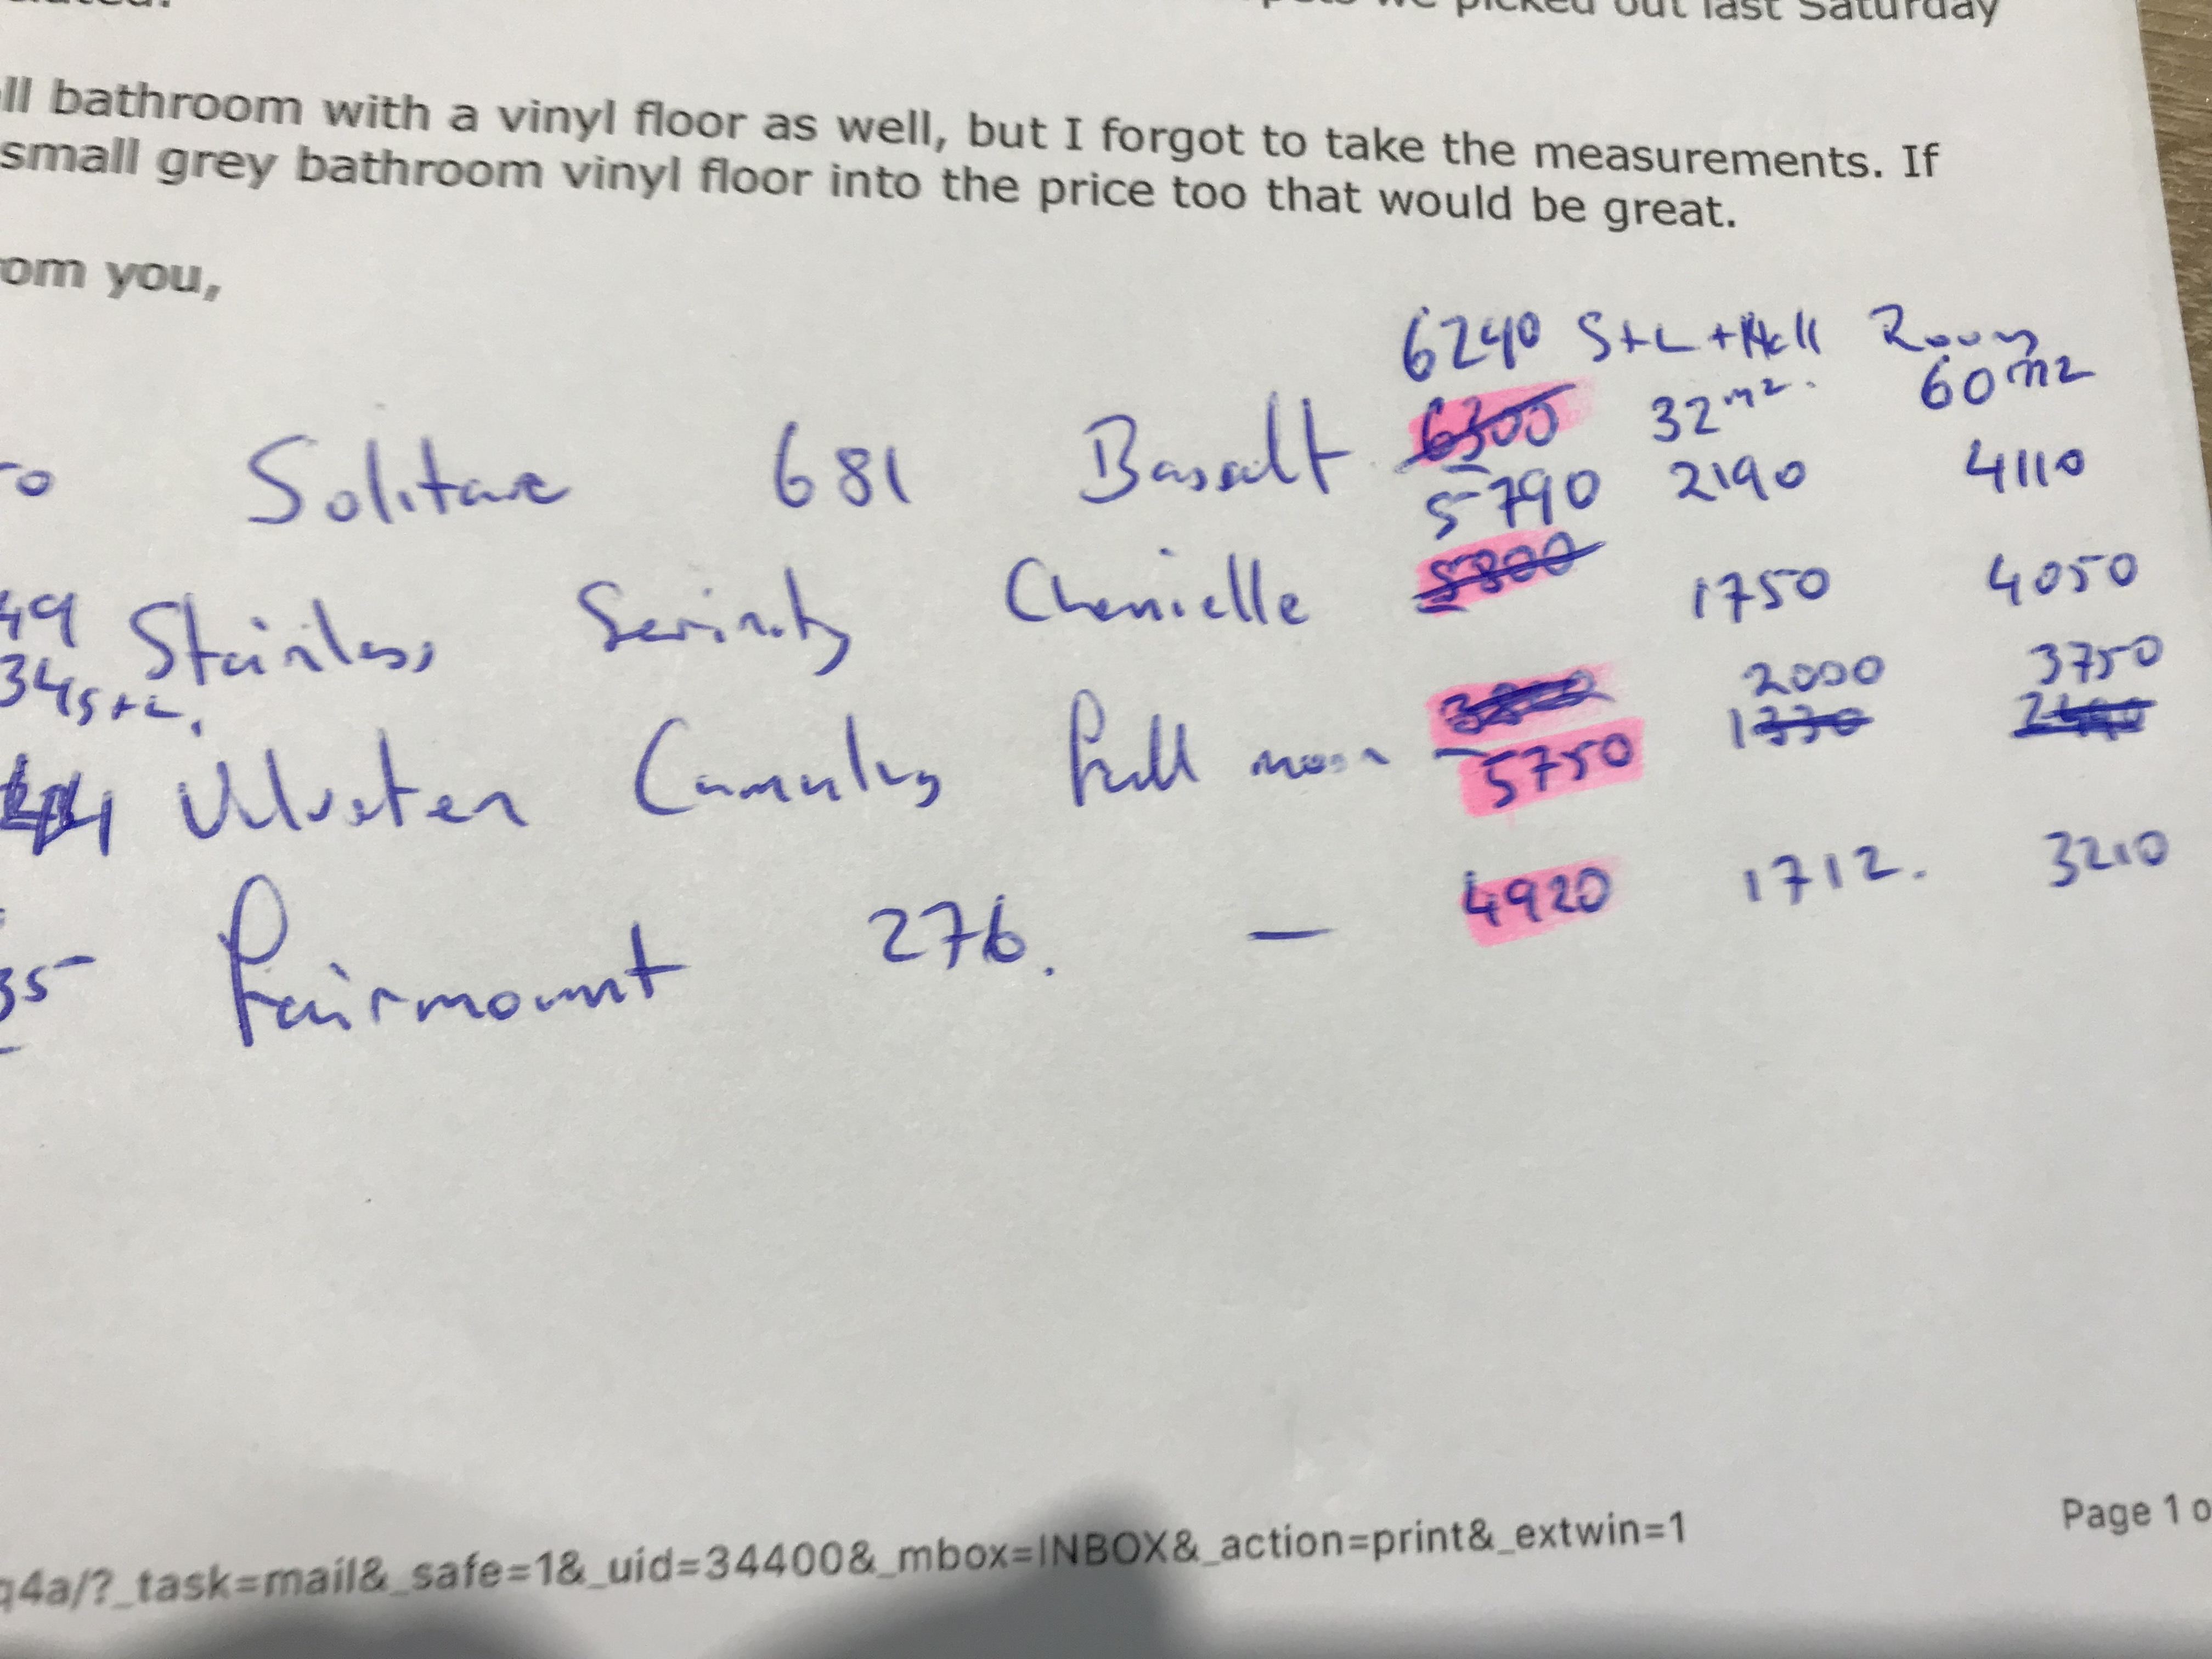 we picked out last Saturday
ll bathroom with a vinyl floor as well, but I forgot to take the measurements. If
small grey bathroom vinyl floor into the price too that would be great.
om you,
6240 S+L+Hall Rooms
6300 32m2. 60m2
Solitare 681 Bassalt
5790 2190 4110
49 Stainless Serinity Chenielle 5800 1750 4050
34 S+L. 2000 3750
44 Velveteen Cumulus full moon - 5750 1730
35 Fairmount 276. — 4920 1712. 3210
q4a/?_task=mail&_safe=1&_uid=34400&_mbox=INBOX&_action=print&_extwin=1
Page 1 o